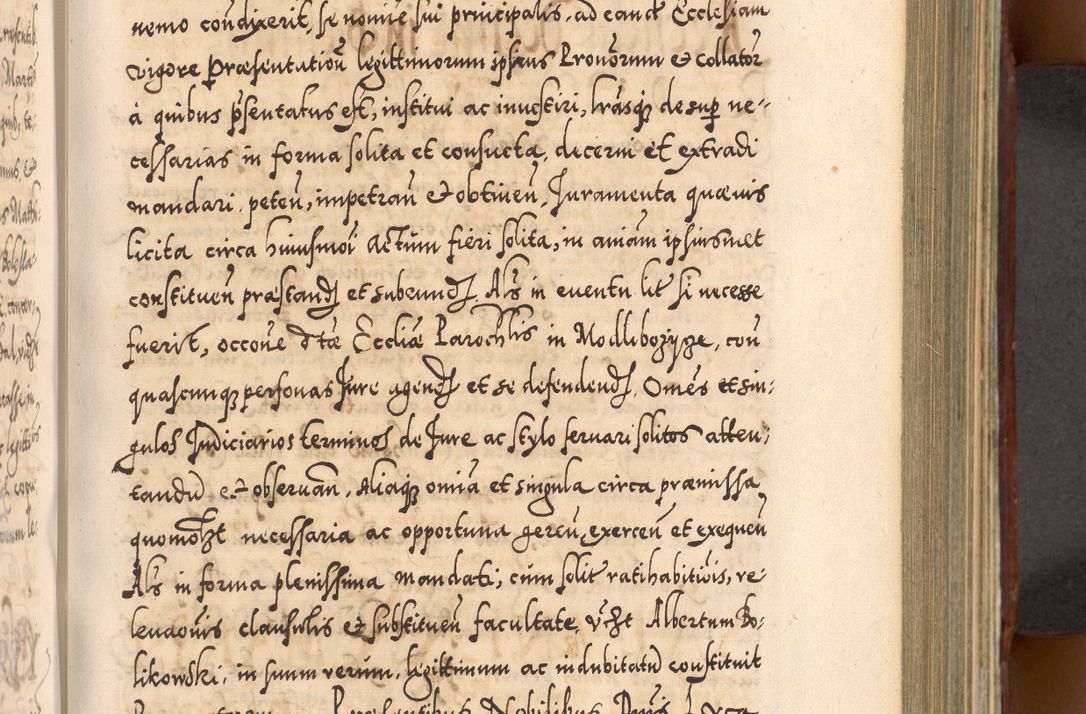 nemo condixerit, se nomine sui principalis, ad eand Ecclesiam
vigore Præsentationū legittimorum ipsius Pronorum et collator
à quibus pſsentatus est, institui ac inuestiri, lrãsq desup ne-
cessarias in forma solita et consueta, decerni et extradi
mandari, peteñ, impetrañ et obtineñ, Juramenta quæuis
licita circa huiusmoi Actum fieri solita, in aniam ipsiusmet
constitueñ præstand et subeund, Als in euentu lit si necesse
fuerit, occoñe dtæ Eccliæ Parochlis in Modlibozyze, con
quascunq personas Jure agend et se defendend, Omes et sin:
gulos Judiciarios terminos de Jure ac stylo seruari solitos atten:
tandū et obseruañ, Aliaq omia et singula circa præmissa
quomolzt necessaria ac opportuna gereñ, exerceñ et exequeñ
Als in forma plenissima mandati, cum solit ratihabitiois, re-
leuaoñis clausulis et substitueñ facultate, vczt Albertum Bo:
likowski, in suum verum, legittimum ac indubitatū constituit
Præsentibus Nobilibus